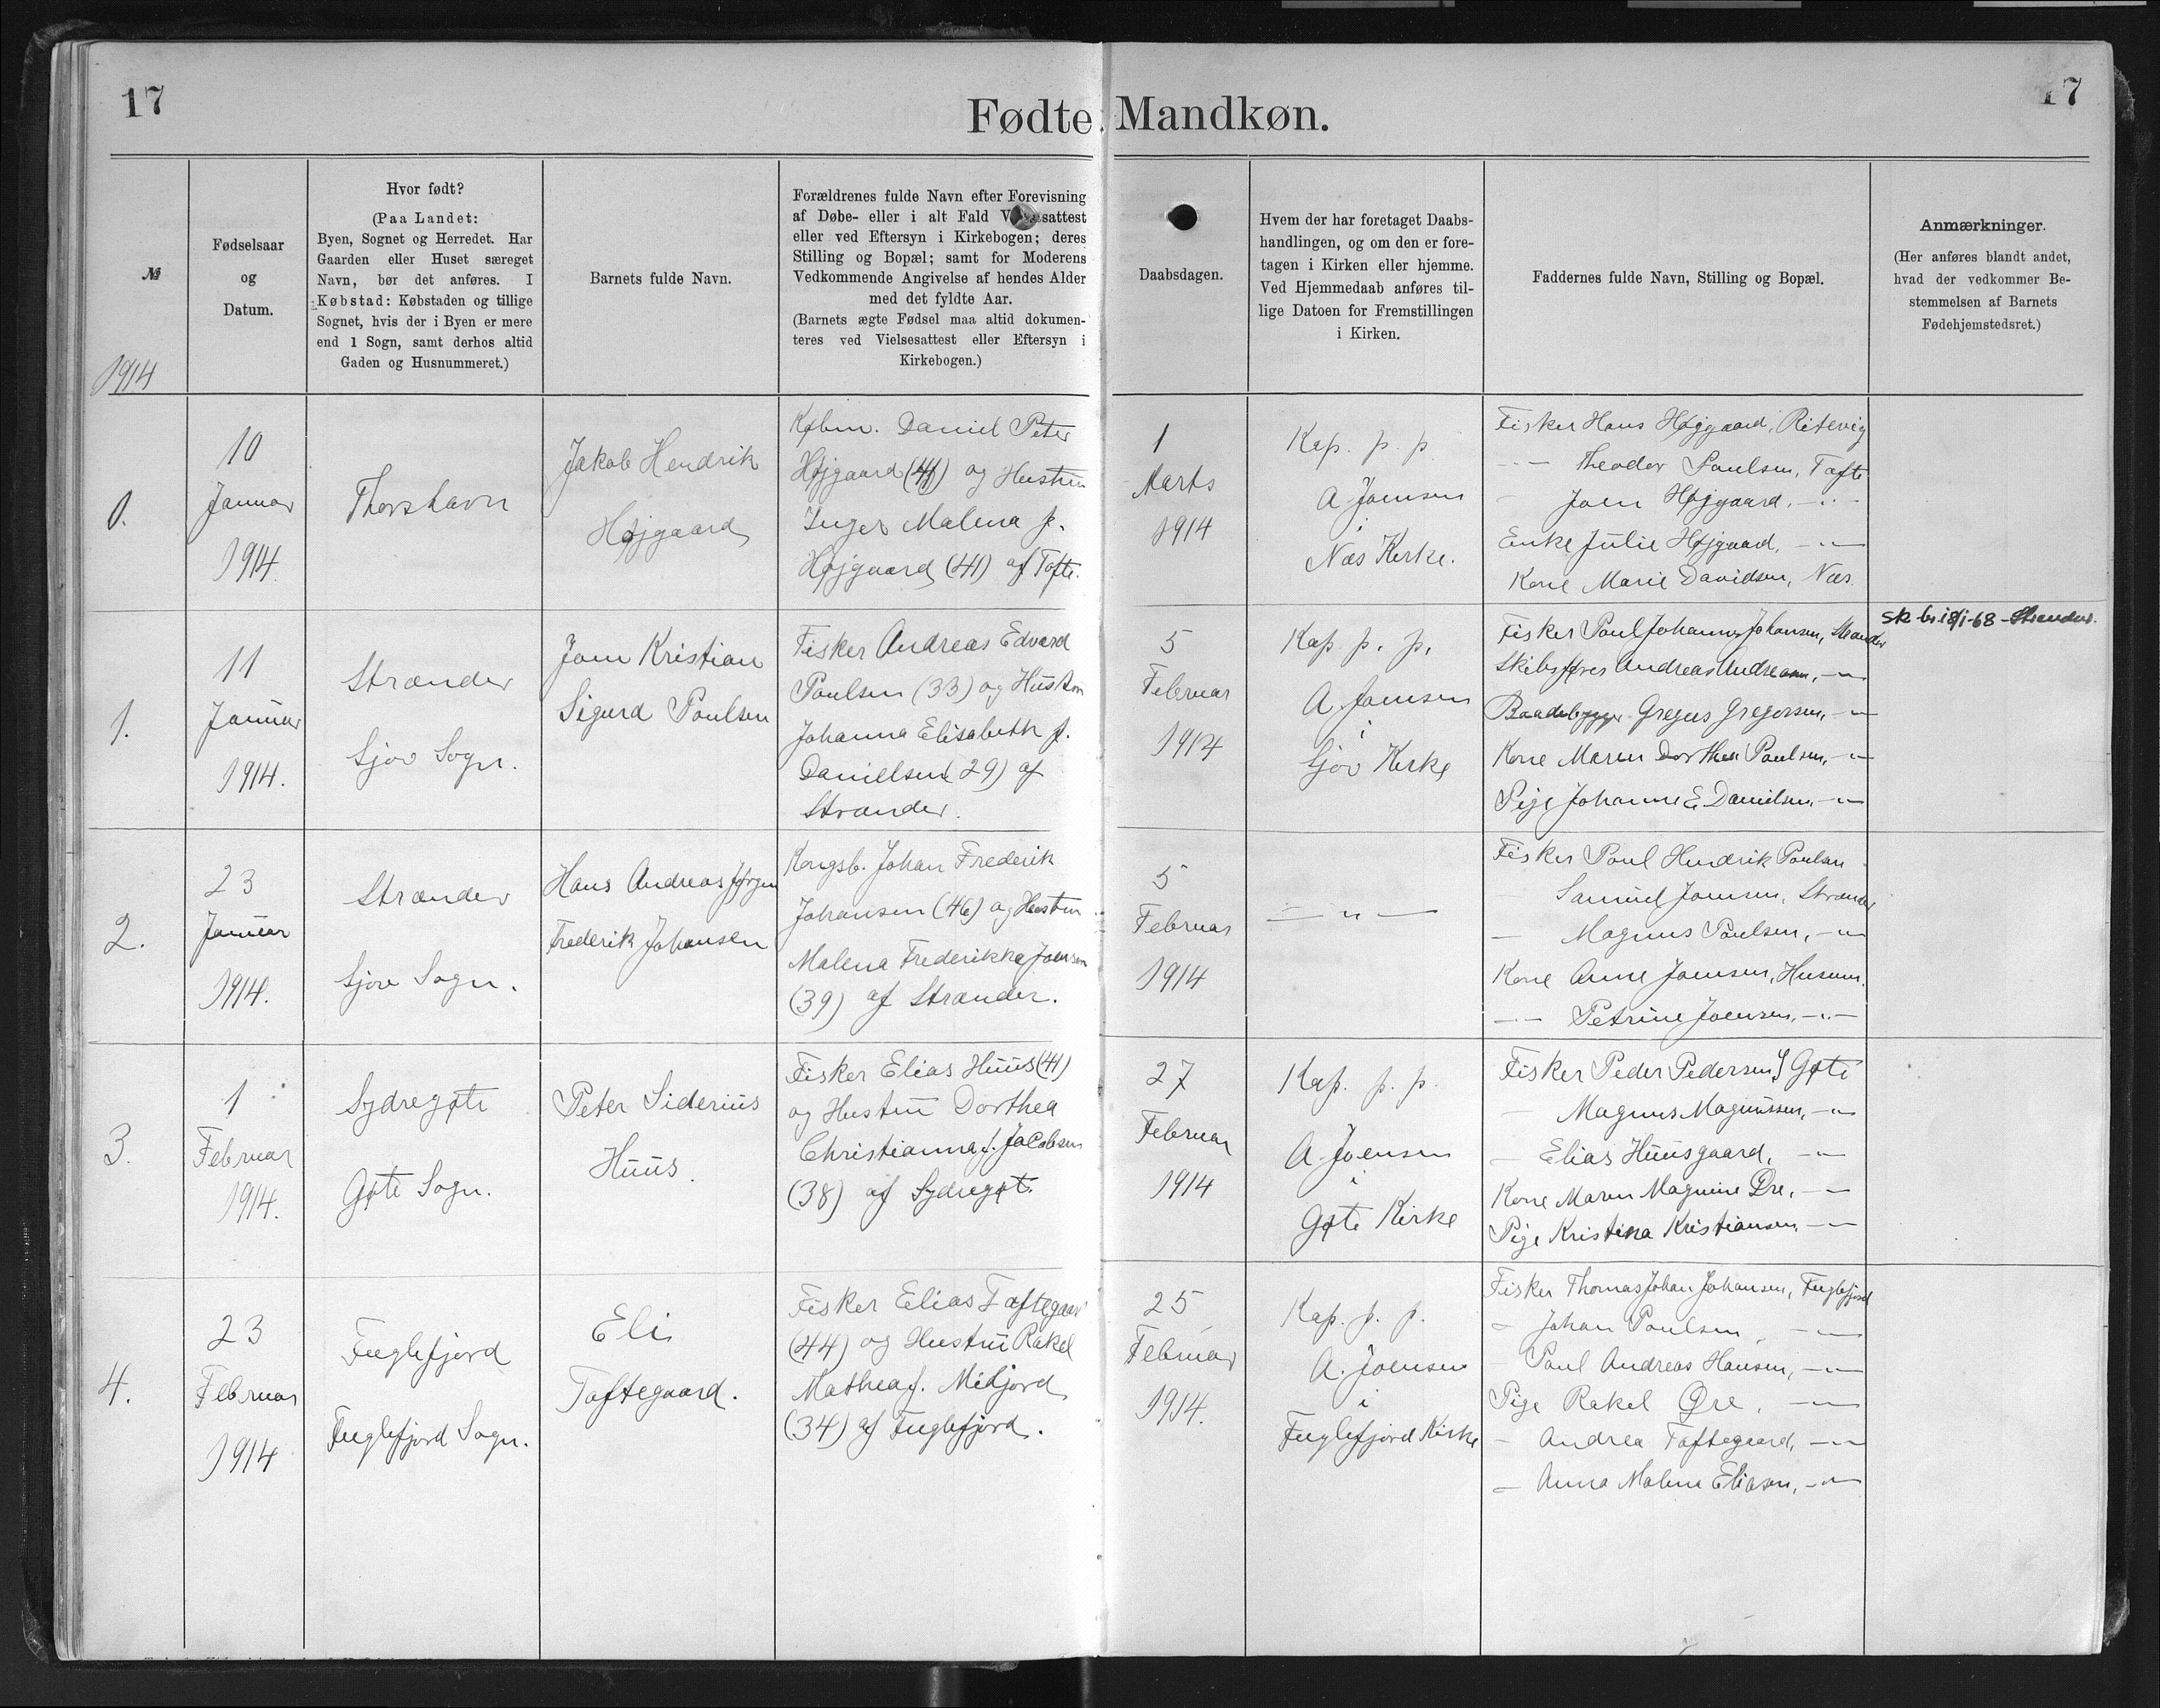 17
17
Fødte. Mandkøn.
№
1914
Fødselsaar
og
Datum.
Hvor født?
(Paa Landet:
Byen, Sognet og Herredet. Har
Gaarden eller Huset særeget
Navn, bør det anføres. I
Købstad: Købstaden og tillige
Sognet, hvis der i Byen er mere
end 1 Sogn, samt derhos altid
Gaden og Husnummeret.)
Barnets fulde Navn.
Forældrenes fulde Navn efter Forevisning
af Døbe- eller i alt Fald sattest
eller ved Eftersyn i Kirkebogen; deres
Stilling og Bopæl; samt for Moderens
Vedkommende Angivelse af hendes Alder
med det fyldte Aar.
(Barnets ægte Fødsel maa altid dokumen-
teres ved Vielsesattest eller Eftersyn i
Kirkebogen.)
Daabsdagen.
Hvem der har foretaget Daabs-
handlingen, og om den er fore-
tagen i Kirken eller hjemme.
Ved Hjemmedaab anføres til-
lige Datoen for Fremstillingen
i Kirken.
Faddernes fulde Navn, Stilling og Bopæl.
Anmærkninger.
(Her anføres blandt andet,
hvad der vedkommer Be-
stemmelsen af Barnets
Fødehjemstedsret.)
0.
10
Januar
1914.
Thorshavn
Jakob Hendrik
Højgaard
Købm. Daniel Peter
Højgaard og Hustru
Inger Malena f.
Højgaard (41) af Tofte.
1
Marts
1914
Kap. p. p.
A Joensen
i
Næs Kirke.
Fisker Hans Højgaard, Ritevig
-"- Theodor Poulsen, Tofte
- Joen Højgaard, -"-
Enke Julie Højgaard, -"-
Kone Marie Davidsen, Næs.
1.
11
Januar
1914.
Strænder
Sjov Sogn.
Joen Kristian
Sigurd Poulsen
Fisker Andreas Edvard
Poulsen (33) og Hustru
Johanna Elisabeth f.
Daniellsen (29) af
Strænder.
5
Februar
1914
Kap p. p.
A. Joensen
i
Sjov Kirke
Fisker Poul Johannes Johansen, Strænder
Skibsfører Andreas Andreasen, -"-
Baadebygger Gregus Gregersen, -"-
Kone Maren Dorthea Poulsen, -"-
Pige Johanne E. Danielsen, -"-
Sk-br 18/1-68 - Strænder.
2.
23
Januar
1914.
Strænder
Sjov Sogn.
Hans Andreas Jørgen
Frederik Johansen
Kongsb. Johan Frederik
Johansen (46) og Hustru
Malena Frederikke Joensen
(39) af Strænder.
5
Februar
1914
- " -
Fisker Poul Hendrik Poulsen
- Samuel Joensen, Strænder
- Magnus Poulsen, -"-
Kone Anne Joensen, Husum.
-"- Petrine Joensen, -"-
3.
1
Februar
1914.
Sydregøte
Gøte Sogn.
Peter Siderius
Huus.
Fisker Elias Huus (41)
og Hustru Dorthea
Christianna f. Jacobsen
(38) af Sydregøt.
27
Februar
1914
Kap. p. p.
A. Joensen
i
Gøte Kirke
Fisker Peder Pedersen, S Gøte
- Magnus Magnussen, -"-
- Elias Huusgaard, -"-
Kone Maren Magnine Øre, -"-
Pige Kristina Kristiansen -"-
4.
23
Februar
1914
Fuglefjord
Fuglefjord Sogn.
Eli
Toftegaard.
Fisker Elias Toftegaard
(44) og Hustru Rakel
Mathea f. Midjord
(34) af Fuglefjord.
25
Februar
1914.
Kap. p. p.
A. Joensen
i
Fuglefjord Kirke
Fisker Thomas Johan Johansen, Fuglefjord
- Johan Poulsen, -"-
- Poul Andreas Hansen, -"-
Pige Rakel Øre, -"-
- Andrea Toftegaard, -"-
- Anna Malene Eliasen, -"-